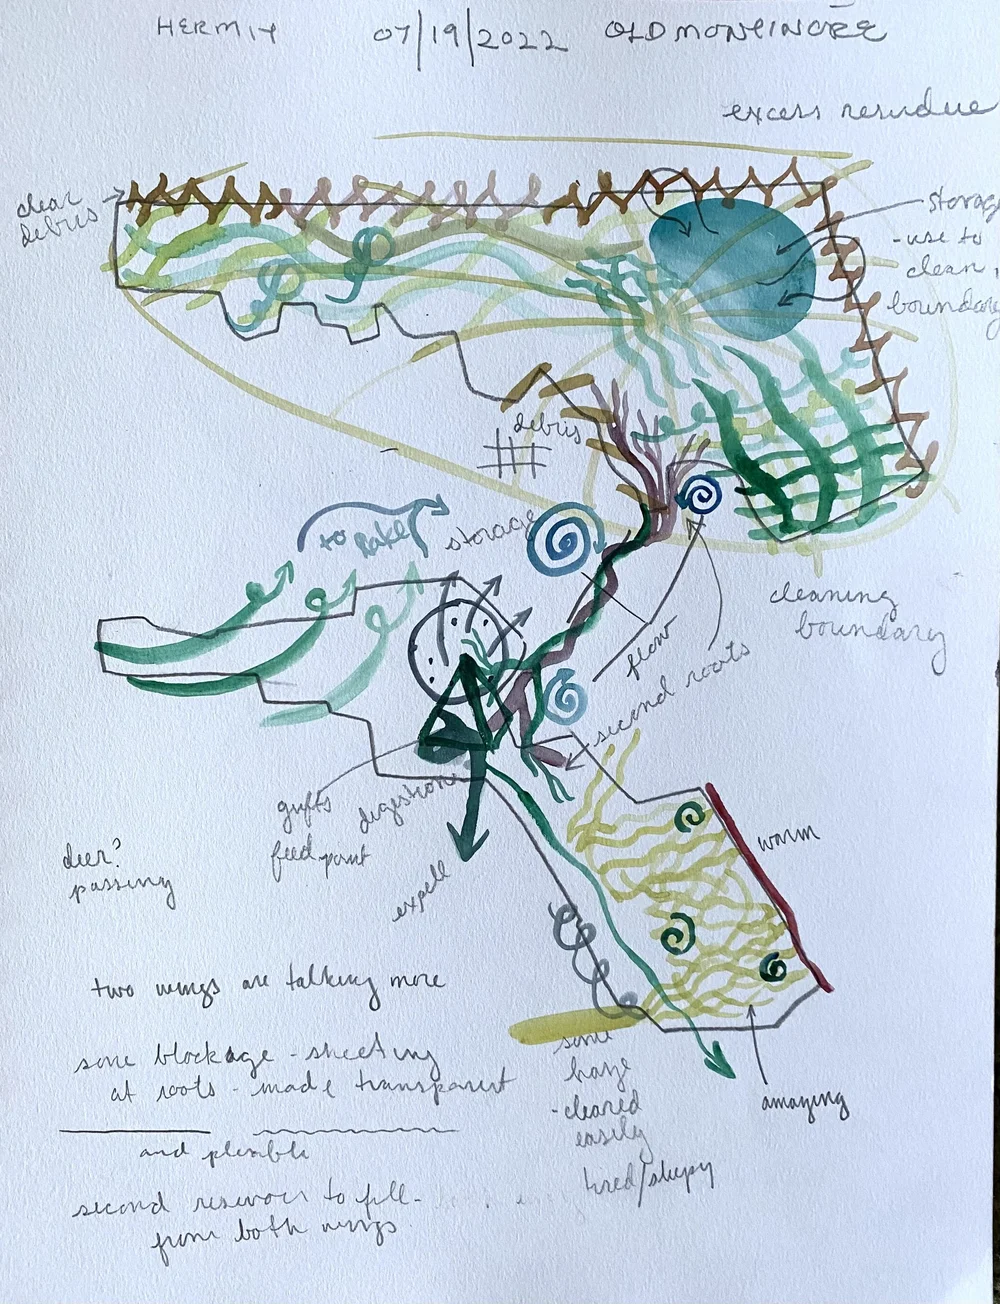 HERMIT 07/19/2022
excess residue
clear
debris
storage
- use to
clean
boundary
debris
to lake
storage
cleaning
boundary
flow
second roots
gifts
feed point
digestion
expell
warm
deer?
passing
two wings are talking more
some blockage - sheeting
at roots - made transparent
and flexible
second resevoir to fill -
from both wings
some
haze
- cleared
easily
tired/sleepy
amazing